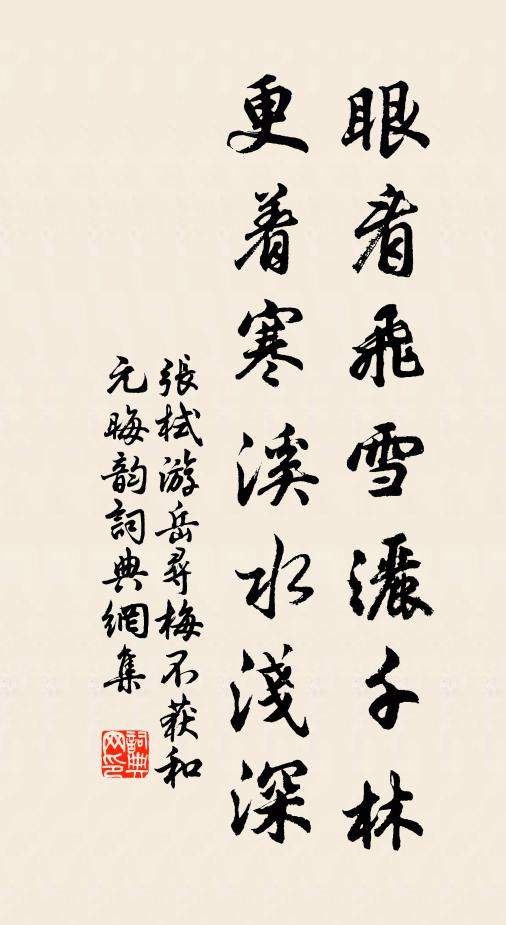 眼看飛雪灑千林
更着寒溪水淺深
張栻游岳尋梅不获和
元晦韵詞典網集
詞典網印